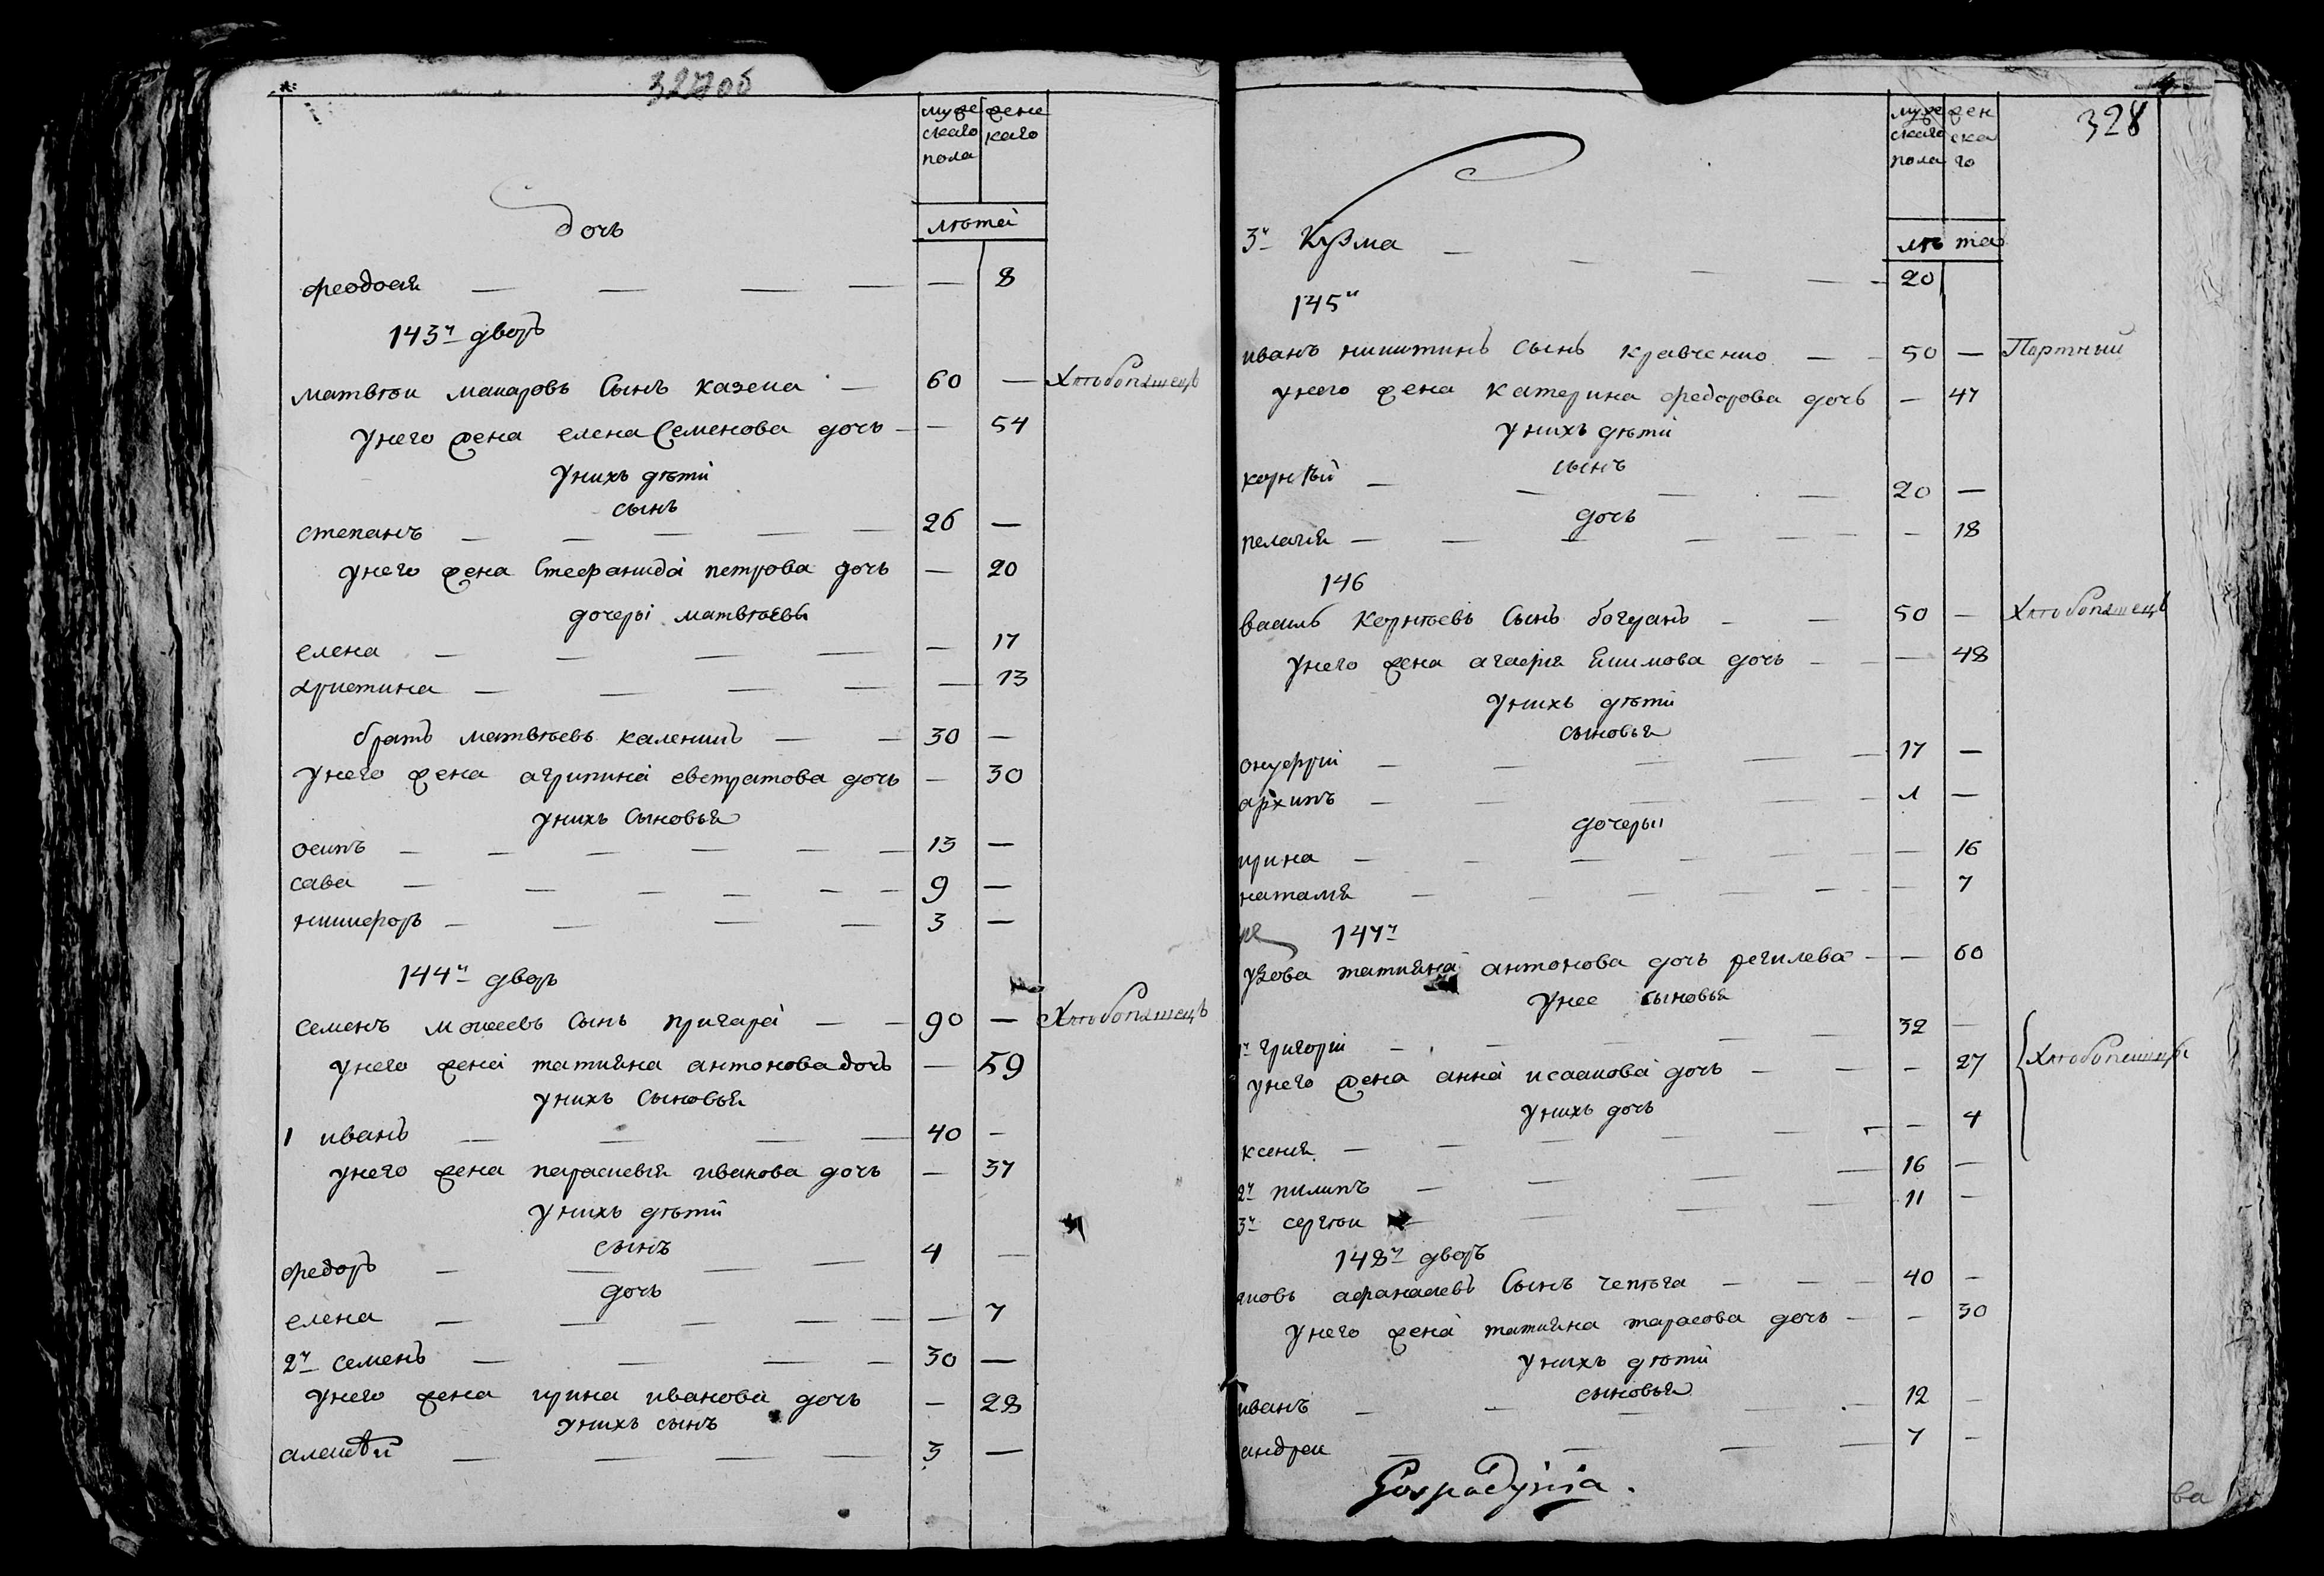 327об
муже ского пола
женс каго
летъ
дочь
феодосия — — — — — 8
143й дворъ
матвѣи макаровъ Сынъ казека — 60 — Хлѣбопашецъ
унего жена елена Семенова дочь — — 54
унихъ дѣти
сынъ
степанъ — — — — — 26 —
унего жена Стефанида петрова дочь — 20
дочери матвѣевы
елена — — — — — 17
христина — — — — — 13
братъ матвѣевъ каленикъ — — 30 —
унего жена агрипина евстратова дочь — 30
унихъ Сыновья
осипъ — — — — — — 13 —
сава — — — — — — 9 —
никифоръ — — — — 3 —
144й дворъ
семенъ моисеевъ Сынъ пригара — — 90 — Хлѣбопашецъ
унего жена татияна антонова дочь — 59
унихъ Сыновья
1 иванъ — — — — 40 —
унего жена параскевия иванова дочь — 37
унихъ дѣти
сынъ
федоръ — — — — 4 —
дочь
елена — — — — — — 7
2й семенъ — — — — 30 —
унего жена ирина иванова дочь — 28
унихъ сынъ
алексѣй — — — — 3 —
328
муже ского пола
жен ска го
лѣта
3й Кузма — — — — — 20
145й
иванъ никитинъ сынъ кравченко — — 50 — Портный
унего жена катерина федорова дочь — 47
унихъ дѣти
сынъ
корнѣй — — — — 20 —
дочь
пелагия — — — — — — — 18
146
василь Корнѣевъ Сынъ богданъ — — 50 — Хлѣбопашецъ
унего жена агафия Якимова дочь — — — 48
унихъ дѣти
сыновья
онуфрий — — — — — 17 —
архипъ — — — — 1 —
дочеры
ирина — — — — — — — 16
наталия — — — — — — 7
147й
удова татияна антонова дочь — — 60
унее сыновья
1й григорий — — — — — 32 —
унего жена анна исаакова дочь — — — 27 Хлѣбопашцы
унихъ дочь
ксения — — — — — — 4
2й пилипъ — — — — 16 —
3й сергѣи — — — — 11 —
148й дворъ
яковъ афанасиевъ Сынъ чепѣга — — — 40 —
унего жена татияна тарасова дочь — — 30
унихъ дѣти
сыновья
иванъ — — — — — 12 —
андреи — — — — 7 —
Gospodynia.
ва